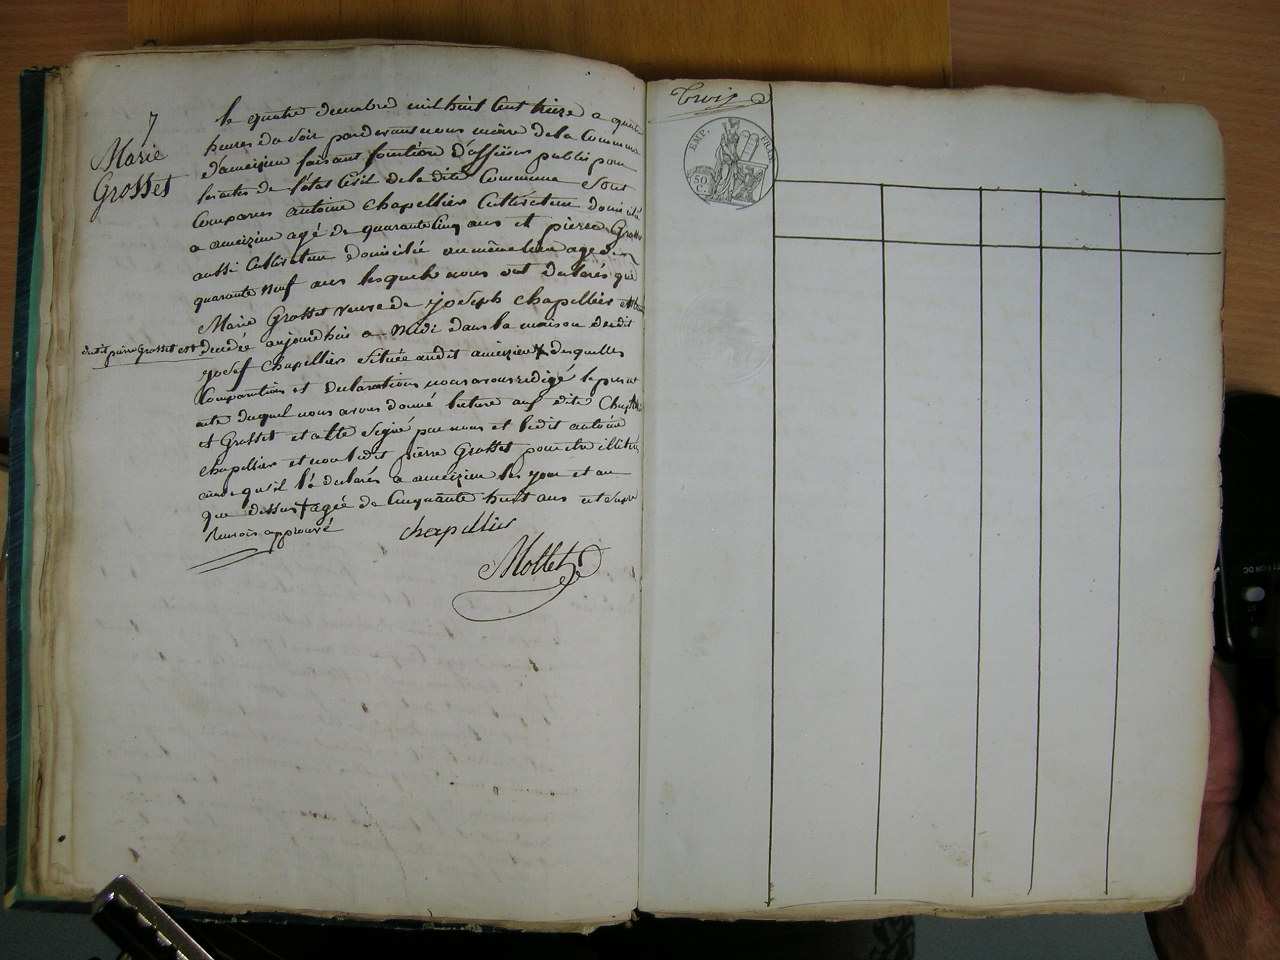 7
Marie
Grosset
le quatre decembre mil huit cent treize a quatre
heures du soir par devant nous maire de la Commune
d'ameizieu faisant fonction d'officier public pour
les actes de l'état Civil de la dite Commune Sont
Comparus antoine Chapellier Cultivateur domicilié
a ameizieu agé de quarante Cinq ans et pierre Grosset
aussi Cultivateur domicilié au même lieu age de
quarante neuf ans lesquels nous ont declarés que
Marie Grosset veuve de joseph Chapellier
dudit pierre Grosset est
decedée aujourdhui a midi dans la maison dudit
josef Chapellier Située audit ameizieu desquelles
Comparutions et declarations nous avons redigé le present
acte duquel nous avons donné lecture aux dits Chapellier
et Grosset et a été Signé par nous et ledit antoine
Chapellier et non ledit pierre Grosset pour etre illitéré
ainsi qu'il l'a declarés a ameizieu les jour et an
que dessus + agée de Cinquante huit ans
Renvois approuvé
chapellier
Mollet
Trois
EMP. FRAN.
50
C.